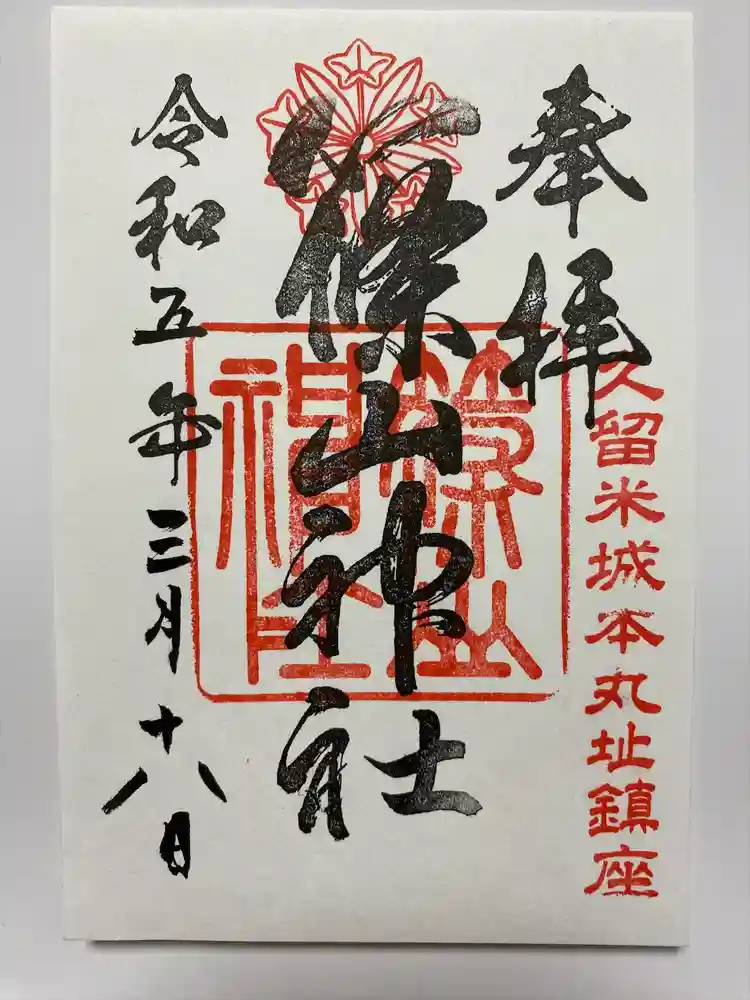 奉拝
久留米城本丸址鎮座
篠山神社
篠山神社
令和五年三月十八日